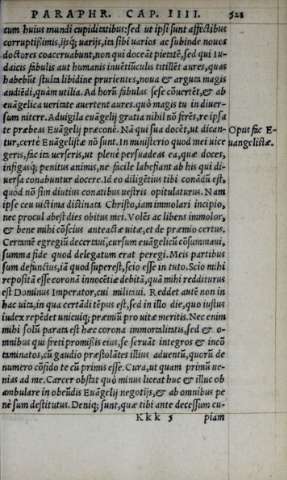 PARAPHR. CAP. IIII.
cum huius mundi cupiditatibus: sed ut ipsi sunt affectibus
corruptissimis, ijsq; uarijs, ita sibi varios ac subinde nouos
doctores coaceruabunt, non qui doceāt pietatē, sed qui iu-
daicis aut humanis inuētiūculis titillēt aures, quas
habebūt stulta libidine prurientes, noua & arguta magis
audiēdi, quàm utilia. Ad horū fabulas sese cōuertēt, & ab
euāgelica ueritate auertent aures. quò magis tu in diuer-
sum nitere. Aduigila euāgelij gratia nihil nō ferēs, re ipsa
te præbeas Euāgelij præconē. Nā qui sua docēt, ut dican-
tur, certè Euāgelistæ nō sunt. In ministerio quod mei uice
geris, sic ita uerseris, ut plenè persuadeas ea, quæ doces,
infigasq; penitus animis, ne facile labefiant ab his qui di-
uersa conabuntur docere. Id eo diligētius tibi conādū est,
quod nō sim diutius conatibus uestris opitulaturus. Nam
ipse ceu uictima destinata Christo, iam immolari incipio,
nec procul abest dies obitus mei. Volēs ac libens immolor,
& bene mihi cōscius anteactæ uitæ, et de præmio certus.
Certamē egregiū decertaui, cursum euāgelicū cōsummaui,
summa fide quod delegatum erat peregi. Meis partibus
sum defunctus, id quod superest, scio esse in tuto. Scio mihi
repositā esse coronā innocētiæ debitā, quā mihi redditurus
est Dominus Imperator, cui militaui. Reddet autē non in
hac uita, in qua certādi tēpus est, sed in illo die, quo iustus
iudex repēdet unicuiq; præmiū pro uitæ meritis. Nec enim
mihi soli parata est hæc corona immortalitatis, sed & o-
mnibus qui freti promissis eius, se seruāt integros & incō
taminatos, cū gaudio præstolātes illius aduentū, quorū de
numero cōfido te cū primis esse. Cura, ut quam primū ue-
nias ad me. Carcer obstat quò minus liceat huc & illuc ob
ambulare in obeūdis Euāgelij negotijs, & ab omnibus pe
nè sum destitutus. Deniq; sunt, quæ tibi ante decessum cu-
Kkk 3 piam
Opus sūc E-
uangelistæ.